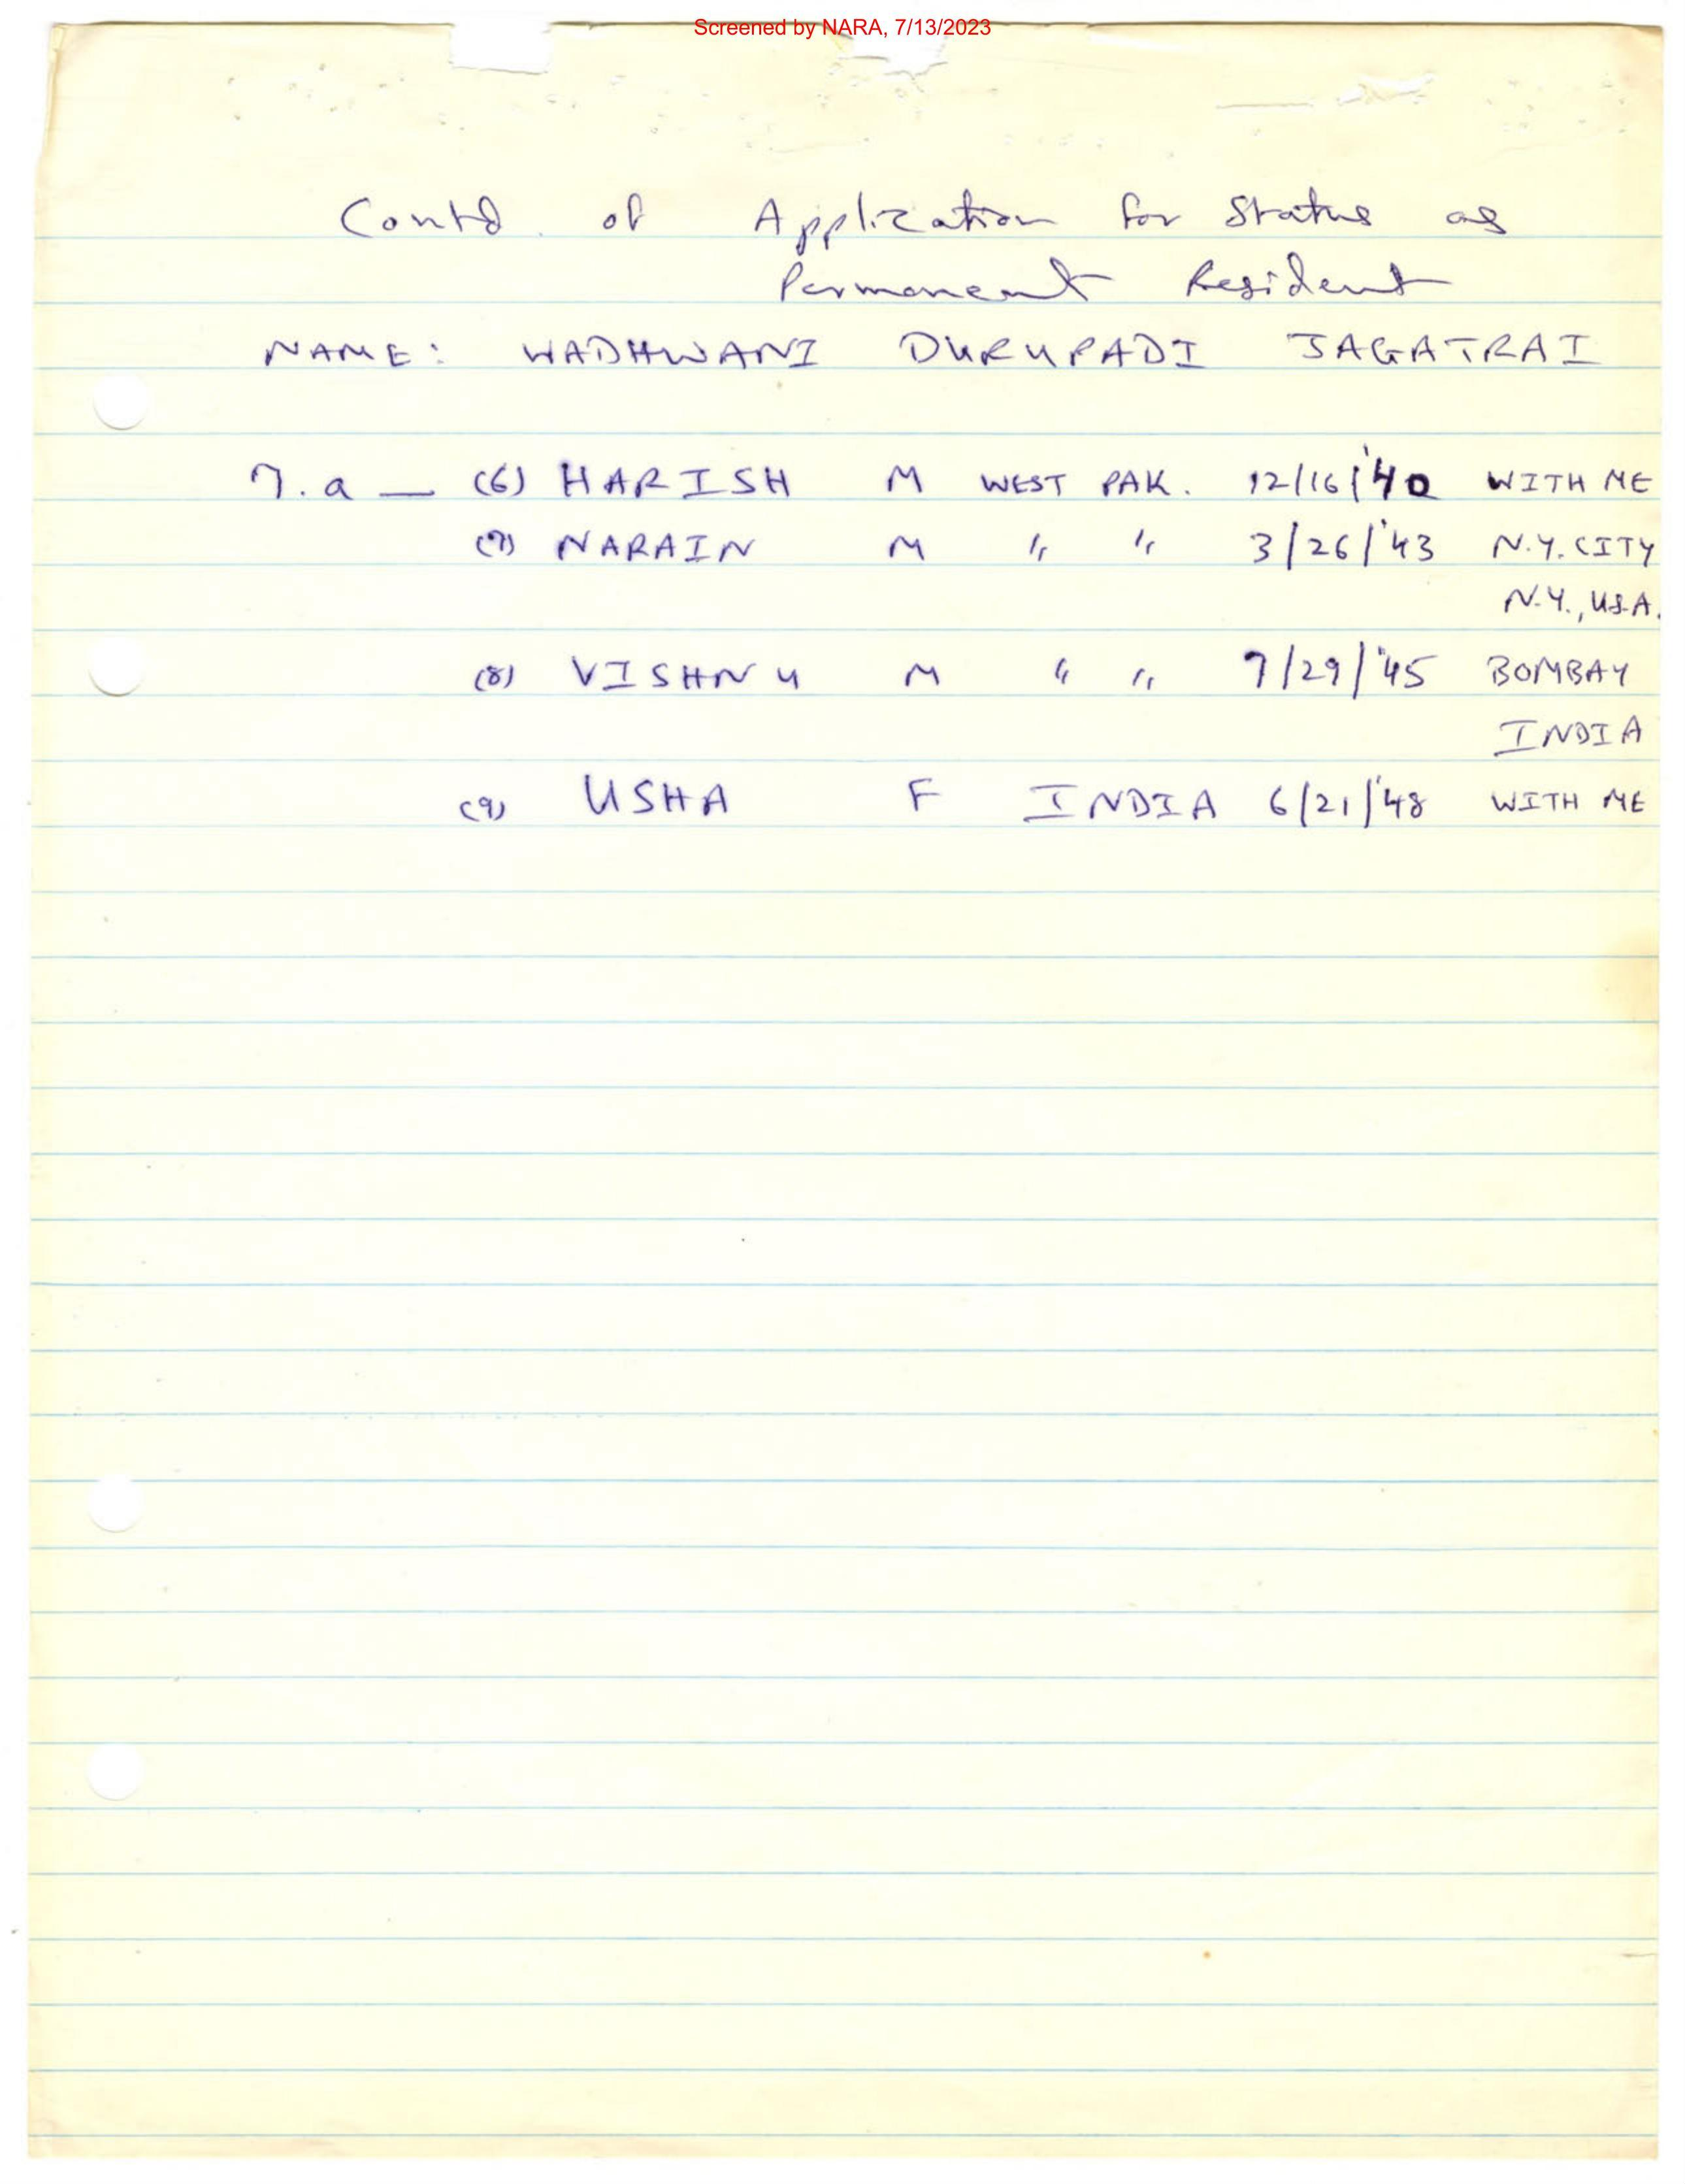 Screened by NARA, 7/13/2023
Contd. of Application for Status as
Permanent Resident
NAME: WADHWANI DURUPADI JAGATRAI
7.a — (6) HARISH M WEST PAK. 12/16/'40 WITH ME
(7) NARAIN M " " 3/26/'43 N.Y. CITY
N.Y., U.S.A.
(8) VISHNU M " " 7/29/'45 BOMBAY
INDIA
(9) USHA F INDIA 6/21/'48 WITH ME